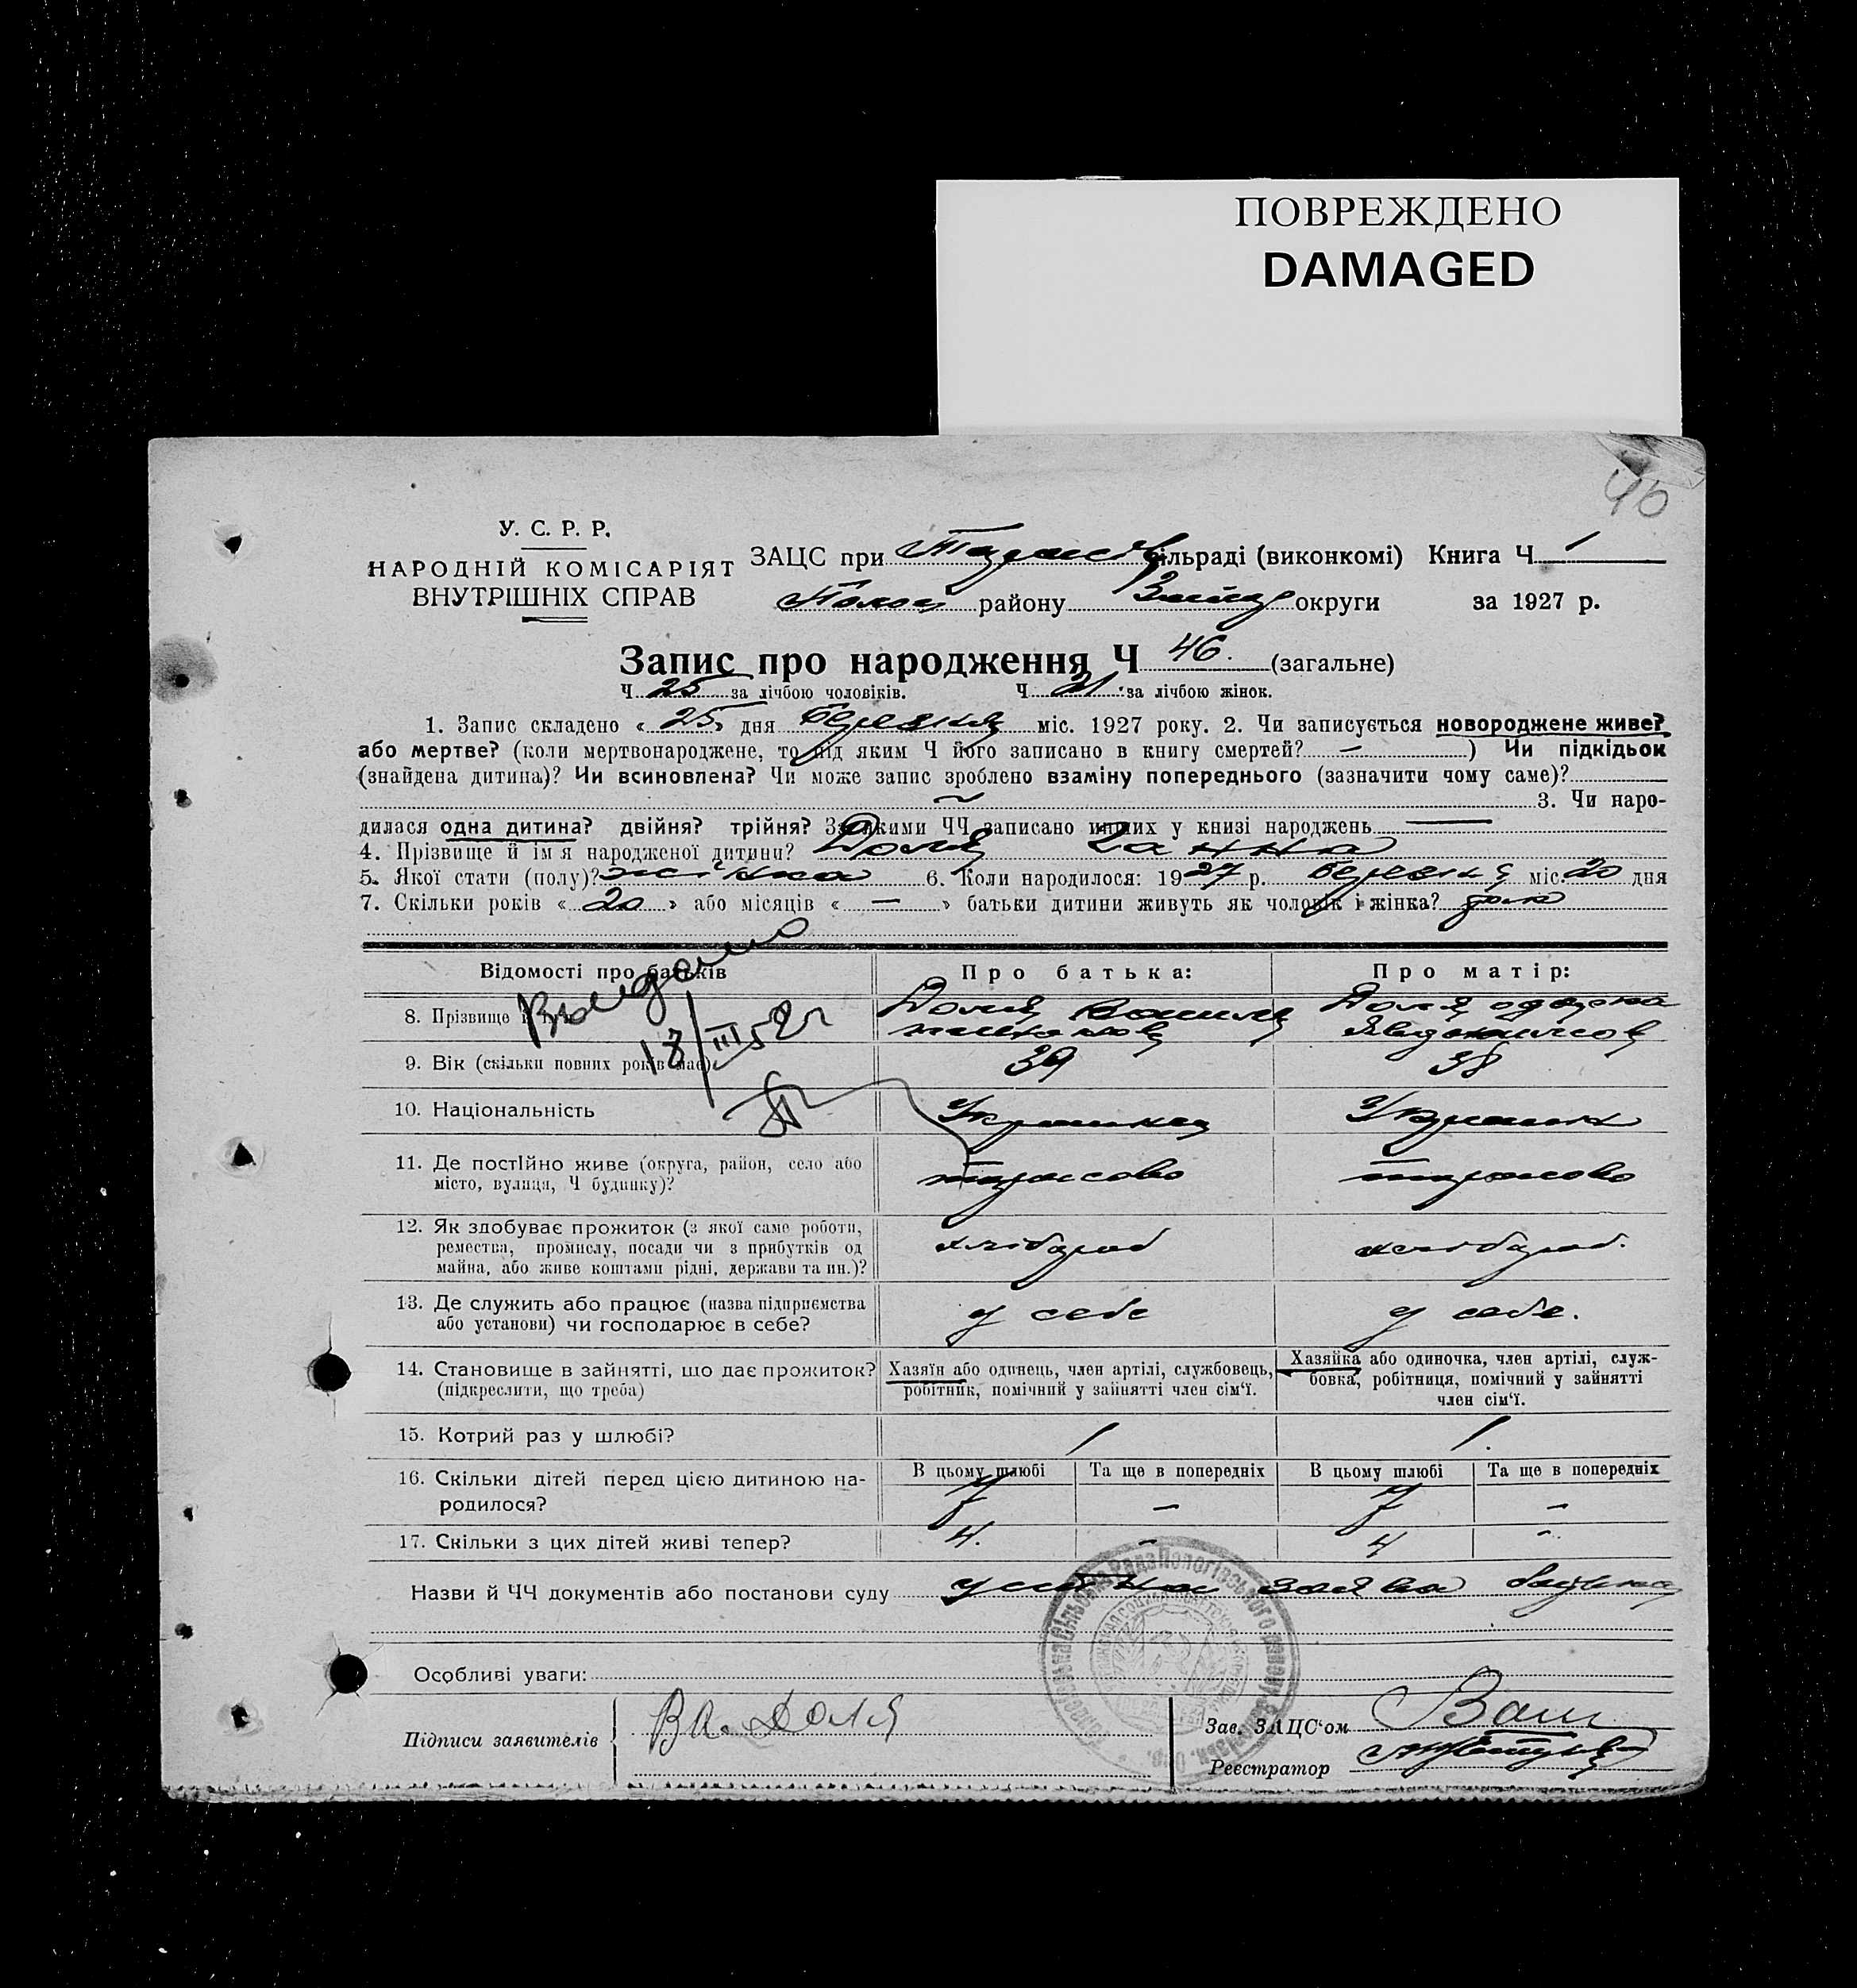 ПОВРЕЖДЕНО
DAMAGED
46
У. С. Р. Р.
НАРОДНІЙ КОМІСАРІЯТ
ВНУТРІШНІХ СПРАВ
ЗАЦС при Тарасів сільраді (виконкомі) Книга Ч. 1
Полог району Запор округи за 1927 р.
Запис про народження Ч 46. (загальне)
Ч 25 за лічбою чоловіків. Ч 21 за лічбою жінок.
1. Запис складено « 25 » дня березня міс. 1927 року. 2. Чи записується новороджене живе?
або мертве? (коли мертвонароджене, то під яким Ч його записано в книгу смертей? — ) Чи підкідьок
(знайдена дитина)? Чи всиновлена? Чи може запис зроблено взаміну попереднього (зазначити чому саме)?
3. Чи наро-
дилася одна дитина? двійня? трійня? За якими ЧЧ записано инших у книзі народжень —
4. Прізвище й ім'я народженої дитини? Доля Ганна
5. Якої стати (полу)? жінка 6. Коли народилося: 1927 р. березня міс. 20 дня
7. Скільки років « 20 » або місяців « — » батьки дитини живуть як чоловік і жінка?
Відомості про батьків Про батька: Про матір:
8. Прізвище й ім'я Доля Василь Доля
9. Вік (скільки повних років має) 39 38
Выдано
18/III 52 г
10. Національність Українец Украинк
11. Де постійно живе (округа, район, село або
місто, вулиця, Ч будинку)? тарасовка тарасовка
12. Як здобуває прожиток (з якої саме роботи,
ремества, промислу, посади чи з прибутків од
майна, або живе коштами рідні, держави та ин.)? хлібороб хлібороб.
13. Де служить або працює (назва підприємства
або установи) чи господарює в себе? у себе у себе.
14. Становище в зайнятті, що дає прожиток?
(підкреслити, що треба)
Хазяїн або одинець, член артілі, службовець,
робітник, помічний у зайнятті член сім'ї.
Хазяйка або одиночка, член артілі, служ-
бовка, робітниця, помічний у зайнятті
член сім'ї.
15. Котрий раз у шлюбі? 1 1.
16. Скільки дітей перед цією дитиною на-
родилося?
В цьому шлюбі Та ще в попередніх В цьому шлюбі Та ще в попередніх
7 — 7 —
17. Скільки з цих дітей живі тепер? 4. - 4 -
Назви й ЧЧ документів або постанови суду устна заява батька
Особливі уваги:
Підписи заявителів Вл. Доля
Зав. ЗАЦС'ом
Реєстратор